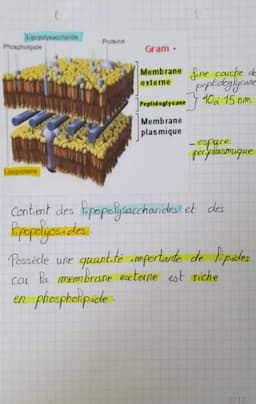 Lipopolysaccharide
Phospholipide
Protéine
Gram -
Membrane externe
fine couche de peptidoglycane
Peptidoglycane
10 à 15 nm
Membrane plasmique
- espace périplasmique
Lipoprotéine
Contient des lipopolysaccharides et des
lipopolyosides.
Possède une quantité importante de lipides
car la membrane externe est riche
en phospholipide.